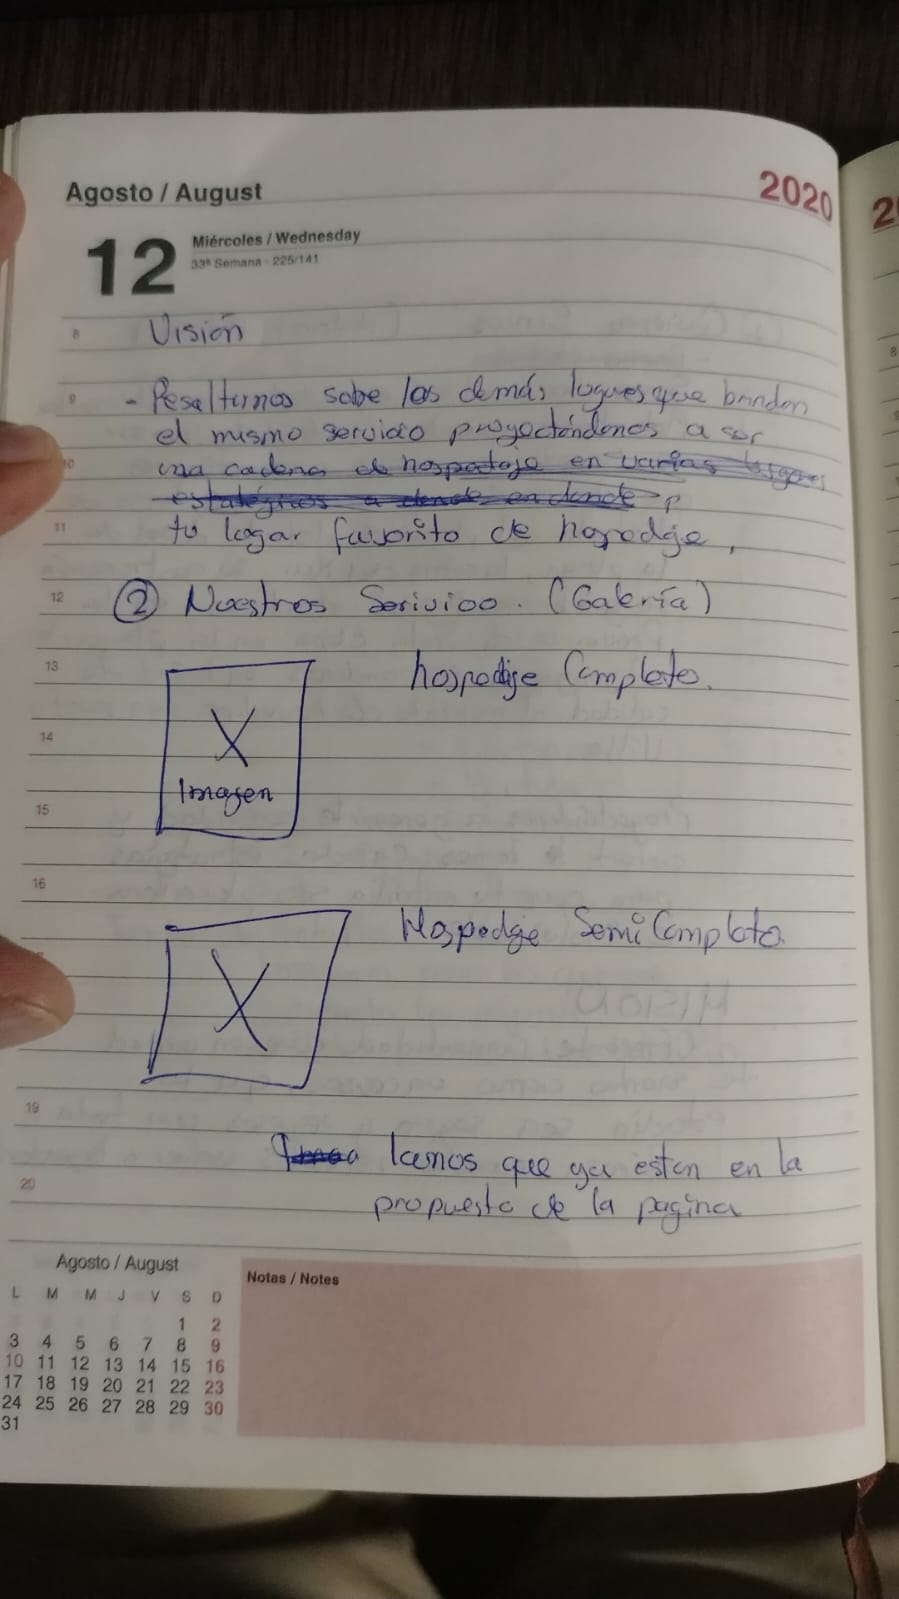 Agosto / August
2020
12
Miércoles / Wednesday
33ª Semana - 225/141
8
Visión
9
- Resaltarnos sobe las demás lugues que brindan
el mismo servicio proyectándonos a ser
10
una cadena de hospedaje en varias lugares
estatégicos a donde en donde
11
tu logar favorito de hospedge,
12
② Nuestros Serivioo. (Galería)
13
hospedje Completo.
14
X
Imagen
15
16
Hospedge Semi Completo.
X
19
Icenos que ya esten en la
20
propuesta de la pagina
Agosto / August
L M M J V S D
1 2
3 4 5 6 7 8 9
10 11 12 13 14 15 16
17 18 19 20 21 22 23
24 25 26 27 28 29 30
31
Notas / Notes